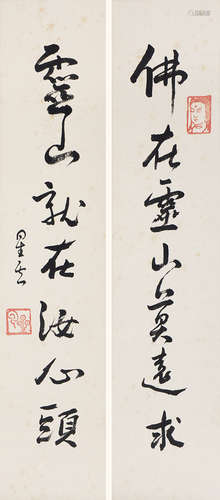 佛在靈山莫遠求
靈山就在汝心頭
星雲